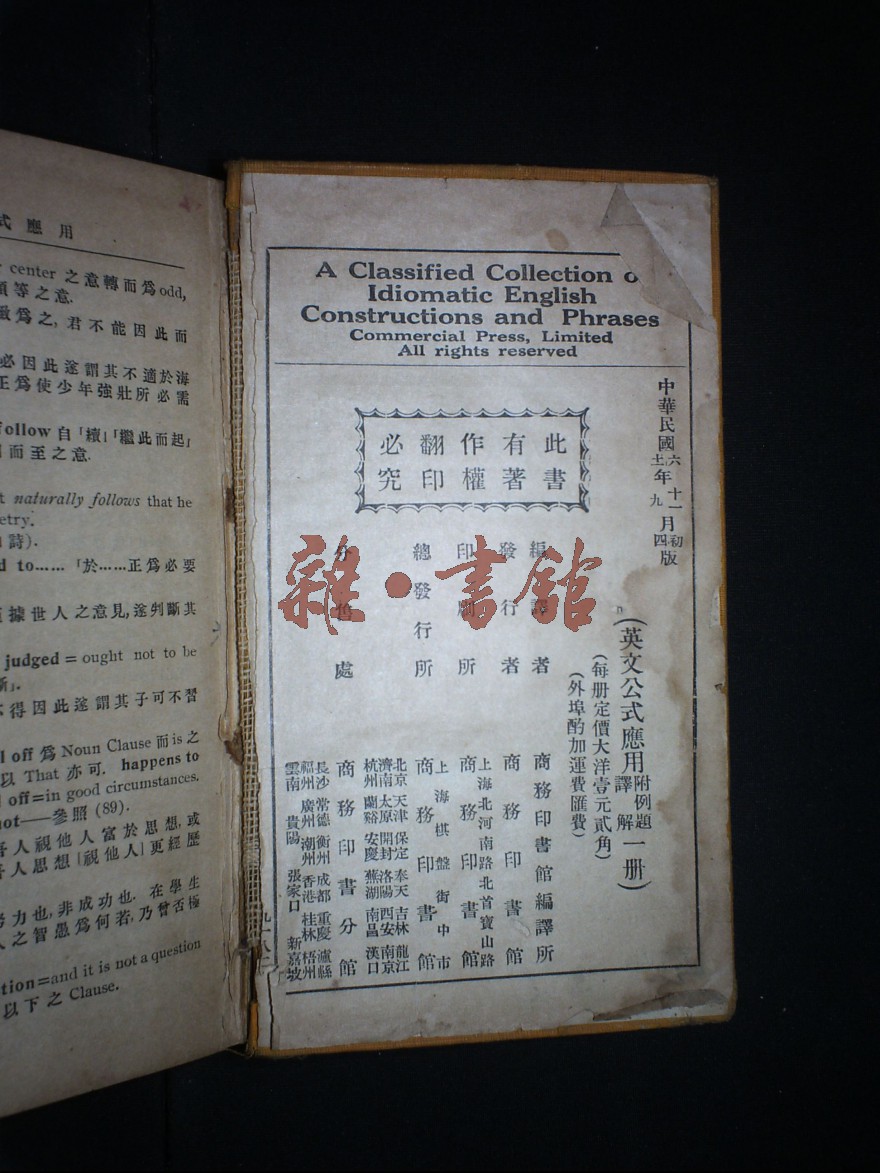 式應用
center 之意轉而爲odd,
等之意.
爲之,君不能因此而
必因此遂謂其不適於海
正爲使少年強壯所必需
follow 自「續」「繼此而起」
而至之意.
t naturally follows that he
etry.
詩).
d to……「於……正爲必要
據世人之意見,遂判斷其
judged = ought not to be
斷」.
得因此遂謂其子可不習
l off 爲 Noun Clause 而 is 之
以 That 亦可. happens to
off=in good circumstances.
not——參照 (89).
吾人視他人富於思想,或
人思想「視他人」更經歷
努力也,非成功也. 在學生
人之智愚爲何若,乃曾否極
tion=and it is not a question
以下之 Clause.
A Classified Collection o
Idiomatic English
Constructions and Phrases
Commercial Press, Limited
All rights reserved
此書有著作權翻印必究
中華民國六年十一月初版
十二 九 四
(英文公式應用附例題譯解一册)
(每册定價大洋壹元貳角)
(外埠酌加運費匯費)
編譯者 商務印書館編譯所
發行者 商務印書館
印刷所 上海北河南路北首寶山路 商務印書館
總發行所 上海棋盤街中市 商務印書館
分售處 商務印書分館
北京 天津 保定 奉天 吉林 龍江
濟南 太原 開封 洛陽 西安 南京
杭州 蘭谿 安慶 蕪湖 南昌 漢口
長沙 常德 衡州 成都 重慶 瀘縣
福州 廣州 潮州 香港 桂林 梧州
雲南 貴陽 張家口 新嘉坡
雜·書館